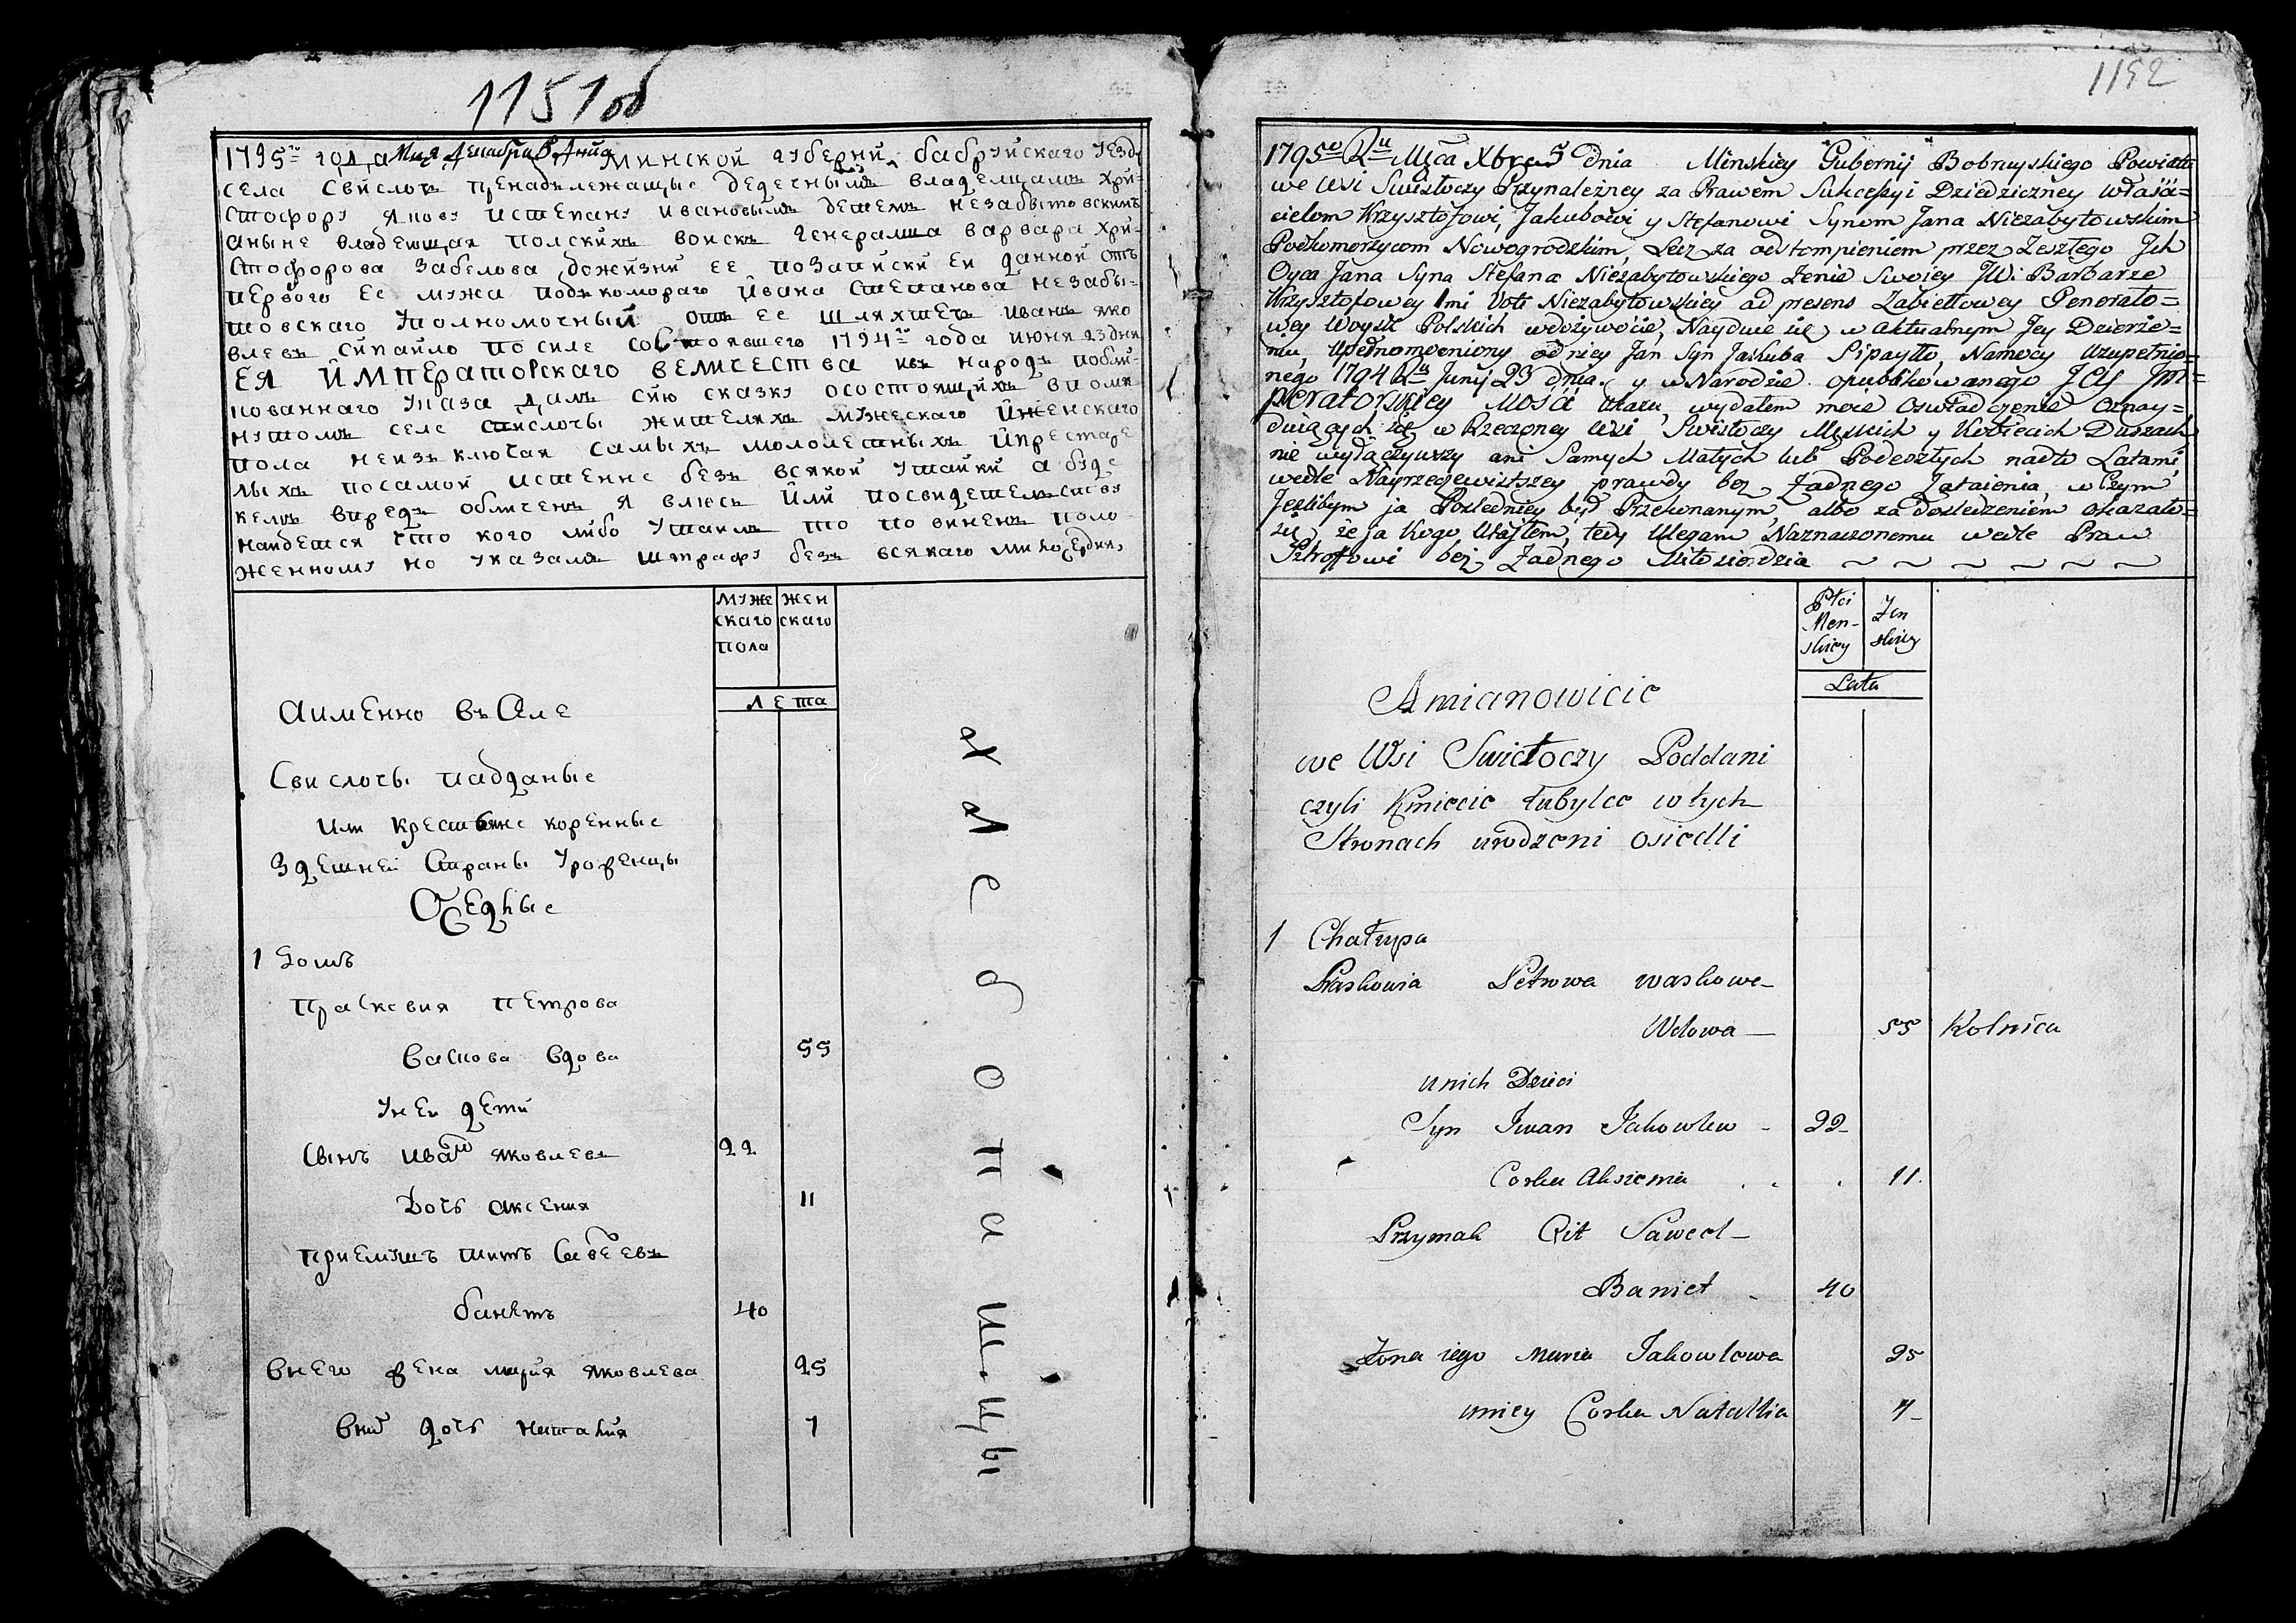 1151об
1795го года Мца Декабря 5 Дня Минской губернй бабруйскаго уезда
села Свислочъ пренадълежащые дедечнымъ владелцамъ хри-
стофору якову истепану ивановымъ детемъ незабытовскимъ
аныне владеющая полскихъ воискъ генералша варвара хри-
стофорова забелова дожизни ее позаписки еи данной отъ
первого ее мужа подъкомораго йвана степанова незабы-
товскаго уполномочный отъ ее шляхтечъ иванъ яко
влевъ сипайло посиле состоявшего 1794го года июня 23 дня
ЕЯ ЙМПЕраторскаго величества ивъ народъ публи-
кованнаго указа далъ сию сказку осостоящихъ впомя-
нутомъ селе свислочы жителяхъ мужескаго йженскаго
пола неизъключая самыхъ молол‌етныхъ йпрестаре
лыхъ посамой истенне безъ всякой утайки а буде
кемъ впредъ обличенъ явлюсь йли посвидетелству
наидется что кого либо утаилъ то повиненъ поло-
женному по указамъ штрафу безъ всякаго милосердия
мужескаго пола
женскаго
лета
аименно въ Селе
Свислочы падданые
или крестьяне коренные
здешней Страны уроженцы
Оседлые
1 домъ
Праскевия петрова
васкова вдова 55
унеи дети
Сынъ иванъ яковлевъ 22
Дочь аксения 11
приемышъ титъ савеевъ
банетъ 40
внего жена мария яковлева 25
вних дочь наталия 7
хлебопашцы
1152
1795go Ru Mca Xbra 5 dnia Minskiey Gubernij Bobruyskiego Powiatu
we Wsi Swisłoczy Przynależney za Prawem Sukcessyi Dziedziczney właści=
cielom Krzysztofowi, Jakubowi y Stefanowi Synom Jana Niezabytowskim
Podkomorzycom Nowogrodzkim, Lecz za odstompieniem przez Zeszłego Jch
Oyca Jana Syna Stefana Niezabytowskiego Żenie Swoiey JWi Barbarze
Krzysztofowey 1mi Voti Niezabytowskiey ad presens Zabiełłowey Generało=
wey Woysk Polskich wdożywocie, Nayduie się w Aktualnym Jey Dzierże=
niu, Upełnomocniony odniey Jan Syn Jakuba Sipayło, Namocy Uzupełnio=
nego 1794 Ru Junij 23 dnia. y w Narodzie opublikowanego JEY Jm=
peratorskiey Mości Ukazu, wydałem moie Oswładczenie Oznay=
duiących się w Rzeczoney Wsi Swisłoczy Męskich y Kobiecich Duszach
nie wyłączywszy ani Samych Małych lub Podeszłych nadto Latami,
wedle Nayrzeczewistszey prawdy bez Żadnego Zataienia, w czym
Jeslibym ja Posledniey był Przekonanym, albo za dosledzeniem okazało=
się, że ja Kogo Utaiłem, tedy Ulegam Naznaczonemu wedle Praw
Sztroffowi bez Żadnego Miłosierdzia
Płci Men-skiey
Żen skiey
Lata
A mianowicie
we Wsi Swisłoczy Poddani
czyli Kmiecie tubylce w tych
Stronach urodzeni osiedli
1 Chałupa
Praskowia Petrowa waskowe-
Wdowa 55 Rolnica
unich Dzieci
Syn Iwan Jakowlew 22
Corka Aksienia 11
Przymak Cit Saweel
Baniet 40
Żona iego Maria Jakowlowa 25
uniey Corka Natallia 7